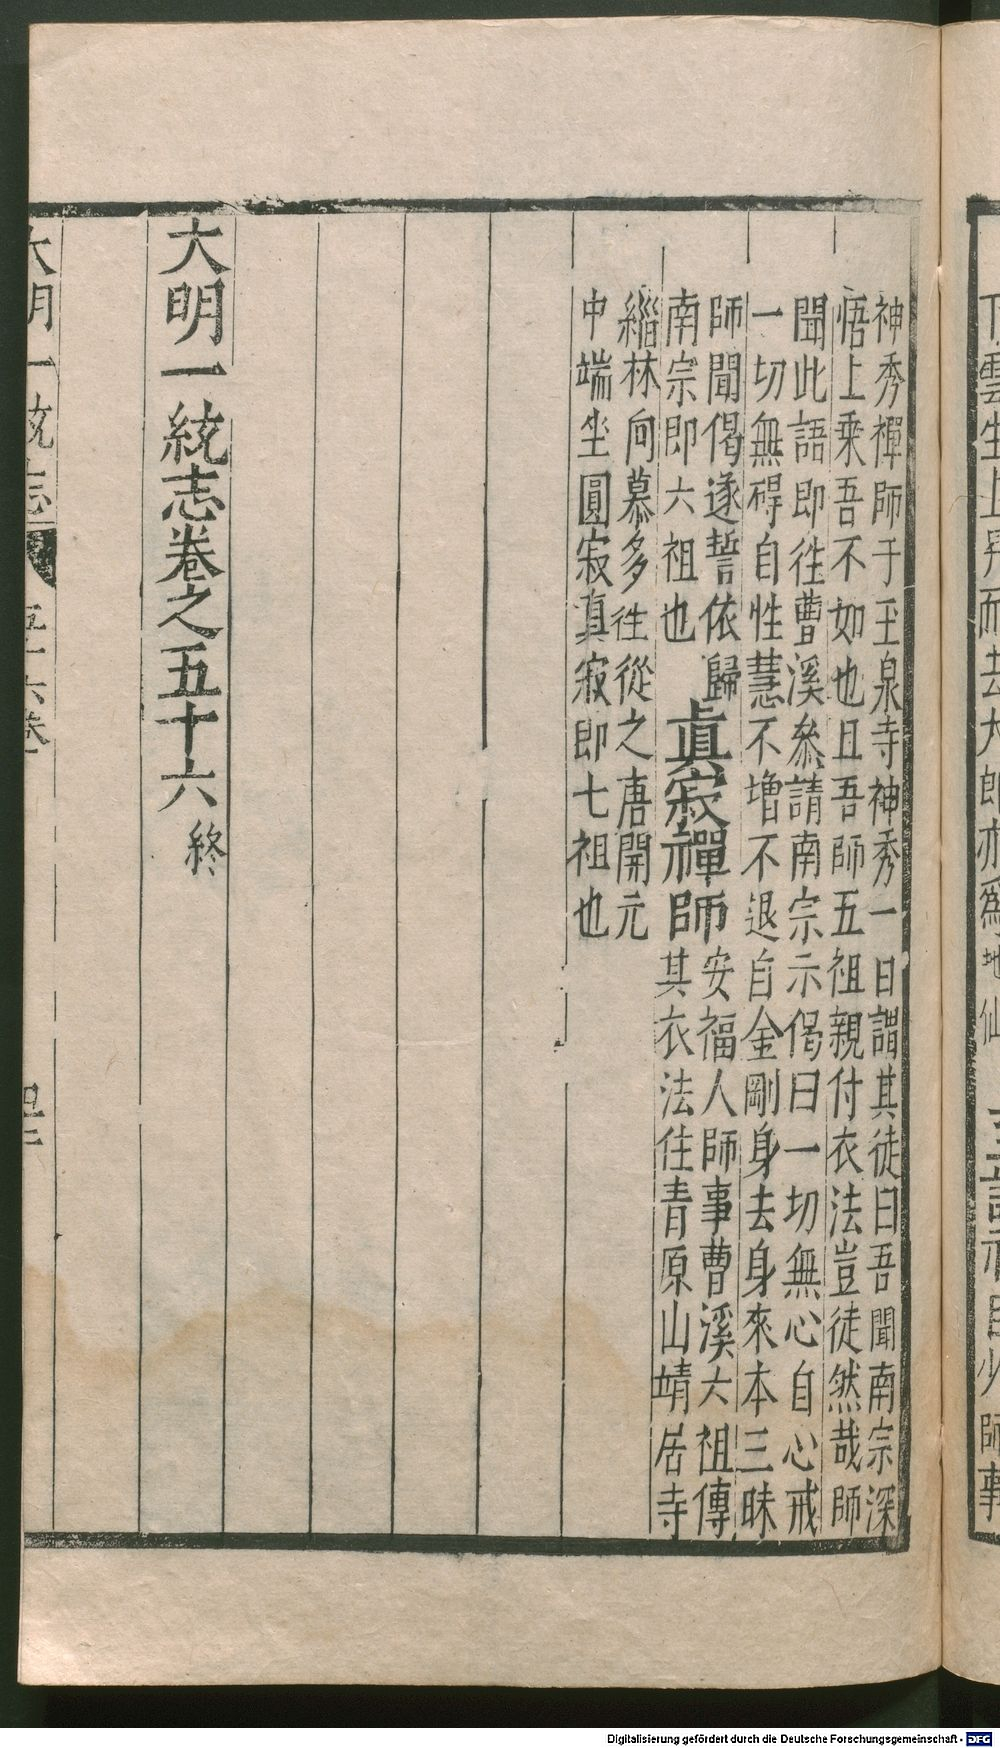 神秀禪師于玉泉寺神秀一日謂其徒曰吾聞南宗深
悟上乘吾不如也且吾師五祖親付衣法豈徒然哉師
聞此語即徃曹溪叅請南宗示偈曰一切無心自心戒
一切無碍自性慧不增不退自金剛身去身來本三昧
師聞偈遂誓依歸
南宗即六祖也
眞寂禪師
安福人師事曹溪六祖傳
其衣法住青原山靖居寺
緇林向慕多徃從之唐開元
中端坐圓寂真寂即七祖也
大明一統志卷之五十六 終
大明一統志
五十六卷
Digitalisierung gefördert durch die Deutsche Forschungsgemeinschaft - DFG